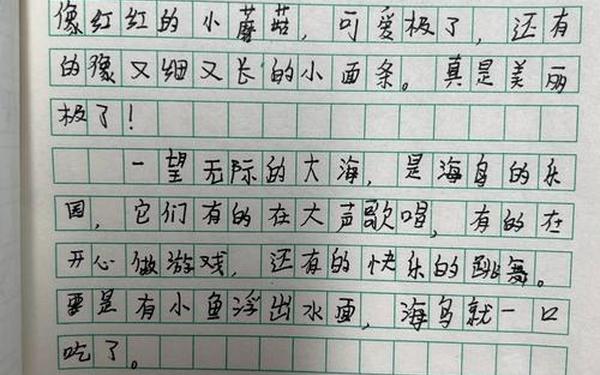 像红红的小蘑菇，可爱极了，还有
的像又细又长的小面条。真是美丽
极了！
一望无际的大海，是海鸟的乐
园，它们有的在大声歌唱，有的在
开心做游戏，还有的快乐的跳舞。
要是有小鱼浮出水面，海鸟就一口
吃了。